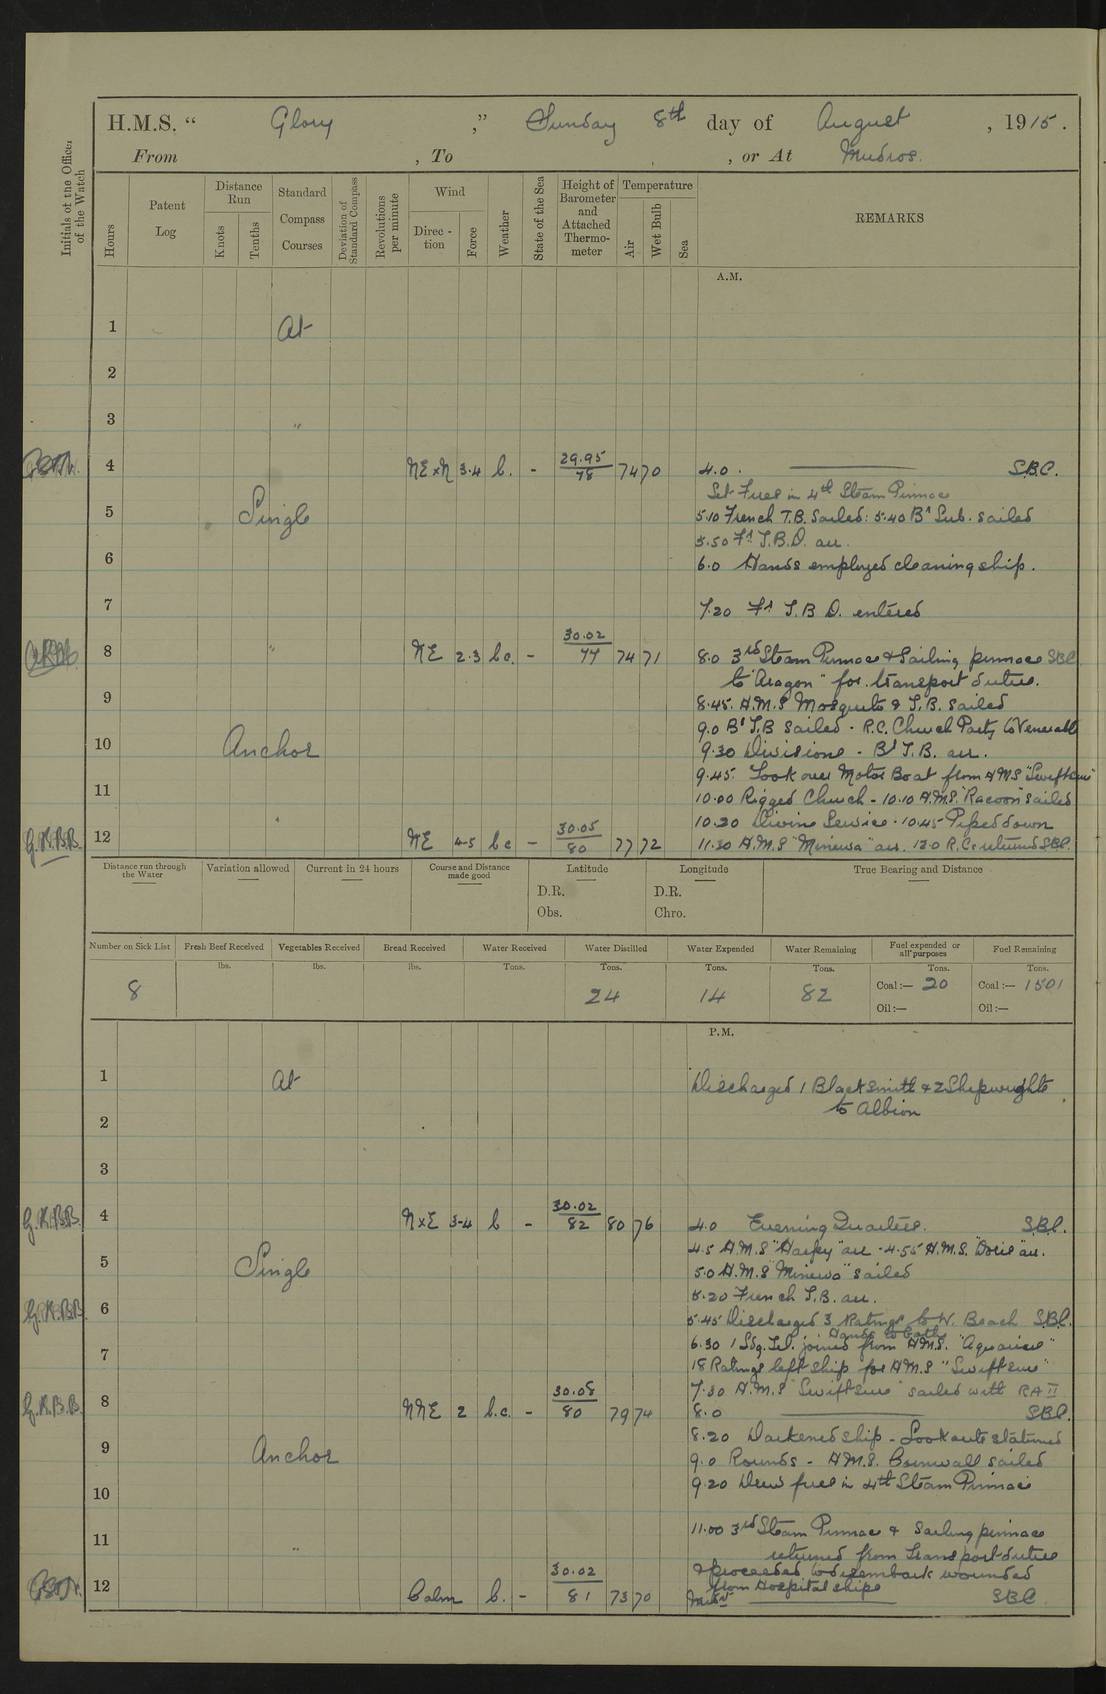 H.M.S. “ Glory ,” Sunday 8th day of August , 1915.
From , To , or At Mudros.
Initials of the Officer of the Watch
Hours
Patent Log
Distance Run
Knots
Tenths
Standard Compass Courses
Deviation of Standard Compass
Revolutions per minute
Wind
Direc-tion
Force
Weather
State of the Sea
Height of Barometer and Attached Thermo-meter
Temperature
Air
Wet Bulb
Sea
REMARKS
A.M.
1 At
2
3 "
4 NE x N 3.4 b. - 29.95 78 74 70 4.0. S.B.C.
Set Fires in 4th Steam Pinnace
5 Single 5.10 French T.B. sailed: 5.40 Br Sub. sailed
5.50 Fr T.B.D. arr.
6 6.0 Hands employed cleaning ship.
7 7.20 Fr T.B.D. entered
8 " NE 2.3 bc. - 30.02 77 74 71 8.0 3rd Steam Pinnace & Sailing pinnace SBC
to "Aragon" for transport duties.
9 8.45. H.M.S Mosquito & T.B. sailed
9.0 Br T.B sailed - R.C. Church Party to Venerable
10 Anchor 9.30 Divisions - Br T.B. arr.
9.45. Took over Motor Boat from HMS "Swiftsure"
11 10.00 Rigged Church - 10.10 H.M.S. "Racoon" sailed
" 10.20 Divine Service. 10.45 Piped down
G.K.B.B. 12 NE 4-5 bc - 30.05 80 77 72 11.30 H.M.S "Minerva" arr. 12.0 R.Cs returned SBC.
Distance run through the Water
Variation allowed
Current in 24 hours
Course and Distance made good
Latitude
D.R.
Obs.
Longitude
D.R.
Chro.
True Bearing and Distance
Number on Sick List
Fresh Beef Received
Vegetables Received
Bread Received
Water Received
Water Distilled
Water Expended
Water Remaining
Fuel expended or all purposes
Fuel Remaining
lbs. lbs. lbs. Tons. Tons. Tons. Tons. Tons. Tons.
8 24 14 82 Coal:— 20 Coal:— 1501
Oil:— Oil:—
P.M.
1 At Discharged 1 Blacksmith & 2 Shipwrights
to Albion
2
3
G.K.B.B. 4 NxE 3-4 b - 30.02 82 80 76 4.0 Evening Quarters. S.B.C.
4.5 H.M.S "Harpy" arr. 4.55 H.M.S. "Doris" arr.
5 Single 5.0 H.M.S "Minerva" sailed
5.20 French T.B. arr.
G.K.B.B. 6 5.45 Discharged 3 Ratings to W. Beach S.B.C.
Hands to bathe
6.30 1 Ldg. Tel. joined from H.M.S. "Aquarius"
7 18 Ratings left ship for H.M.S "Swiftsure"
7.30 H.M.S "Swiftsure" sailed with RA II
G.K.B.B. 8 NNE 2 b.c. - 30.08 80 79 74 8.0 SBC.
8.20 Darkened ship - Lookouts stationed
9 Anchor 9.0 Rounds - H.M.S. Cornwall sailed
9.20 Drew fires in 4th Steam Pinnace
10
11 " 11.00 3rd Steam Pinnace & Sailing pinnace
returned from transport duties
& proceeded to disembark wounded
from Hospital ships
12 Calm b. - 30.02 81 73 70 Midt SBC